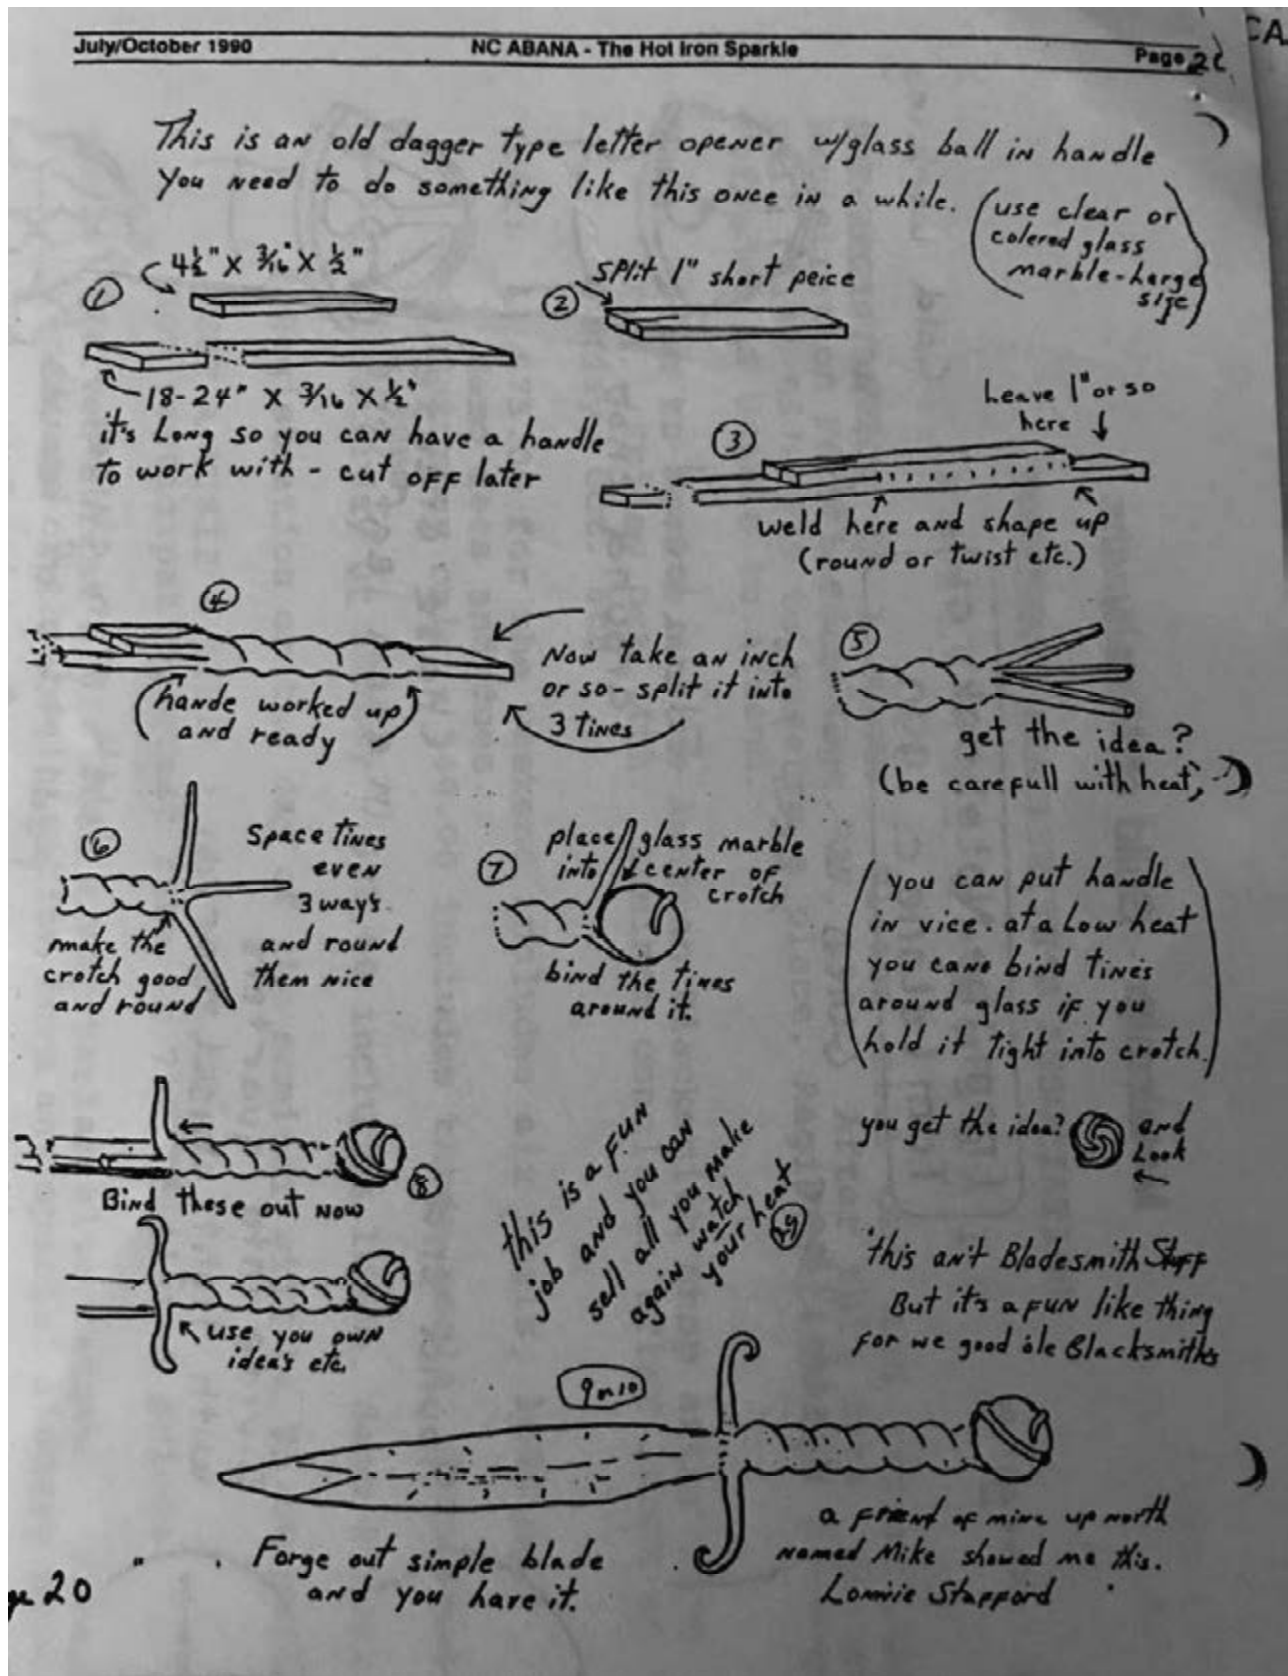 July/October 1990
NC ABANA - The Hot Iron Sparkle
Page
This is an old dagger type letter opener w/glass ball in handle
You need to do something like this once in a while.
(use clear or
colered glass
marble-Large
size)
①
4½" X 3/16" X ½"
18-24" X 3/16 X ½"
it's Long so you can have a handle
to work with - cut off later
②
split 1" short peice
③
Leave 1" or so
here
weld here and shape up
(round or twist etc.)
④
(hande worked up
and ready)
Now take an inch
or so - split it into
3 Tines
⑤
get the idea?
(be carefull with heat)
⑥
Space Tines
even
3 ways
and round
them nice
make the
crotch good
and round
⑦
place glass marble
into center of
crotch
bind the tines
around it.
(you can put handle
in vice. at a Low heat
you can bind tines
around glass if you
hold it tight into crotch.)
⑧
Bind these out now
use you own
idea's etc.
this is a fun
job and you can
sell all you make
again watch
your heat
you get the idea?
and
Look
this an't Bladesmith Stuff
But it's a fun like thing
for we good ole Blacksmiths
Forge out simple blade
and you have it.
a friend of mine up north
named Mike showed me this.
Lonnie Stafford
20